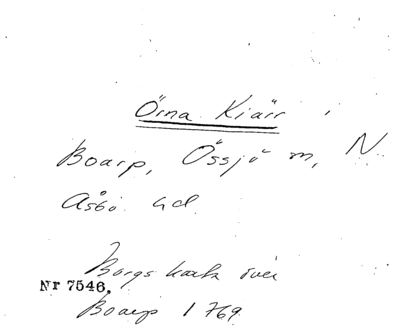 Örna Kiärr
Boarp, Össjö m, N
Åsbo hd.
Borgs karta över
Nr 7546.
Boarp 1769